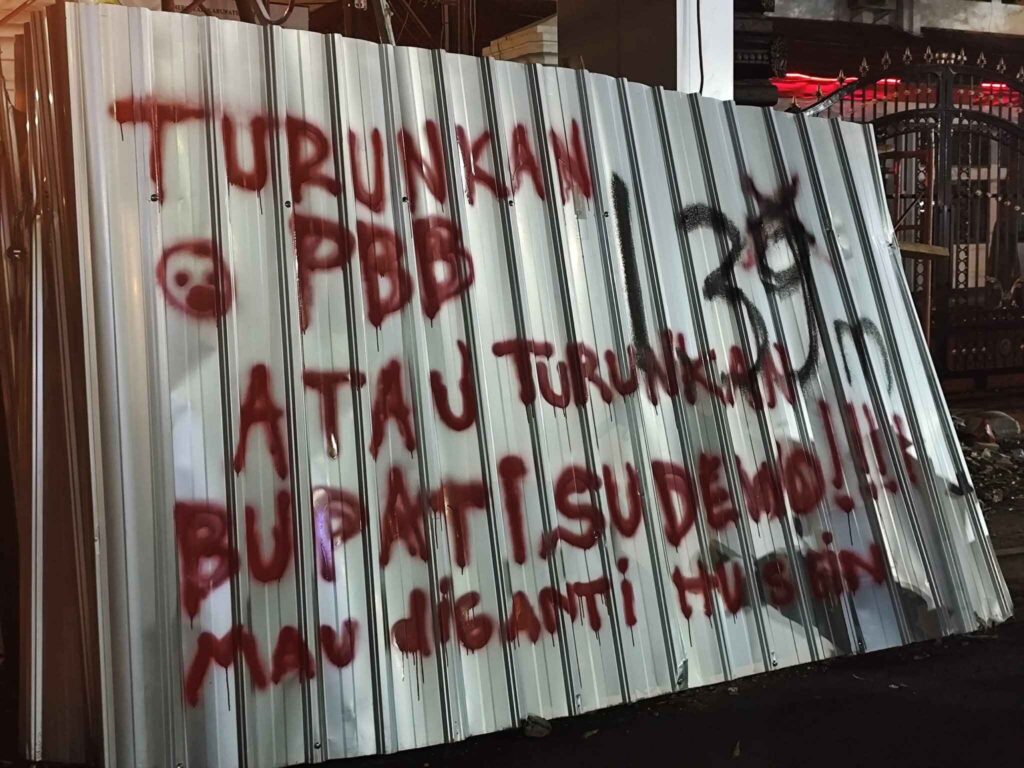 TURUNKAN
PBB
ATAU TURUNKAN
BUPATI SUDEWO!!!!
MAU diGANTi HUSEiN